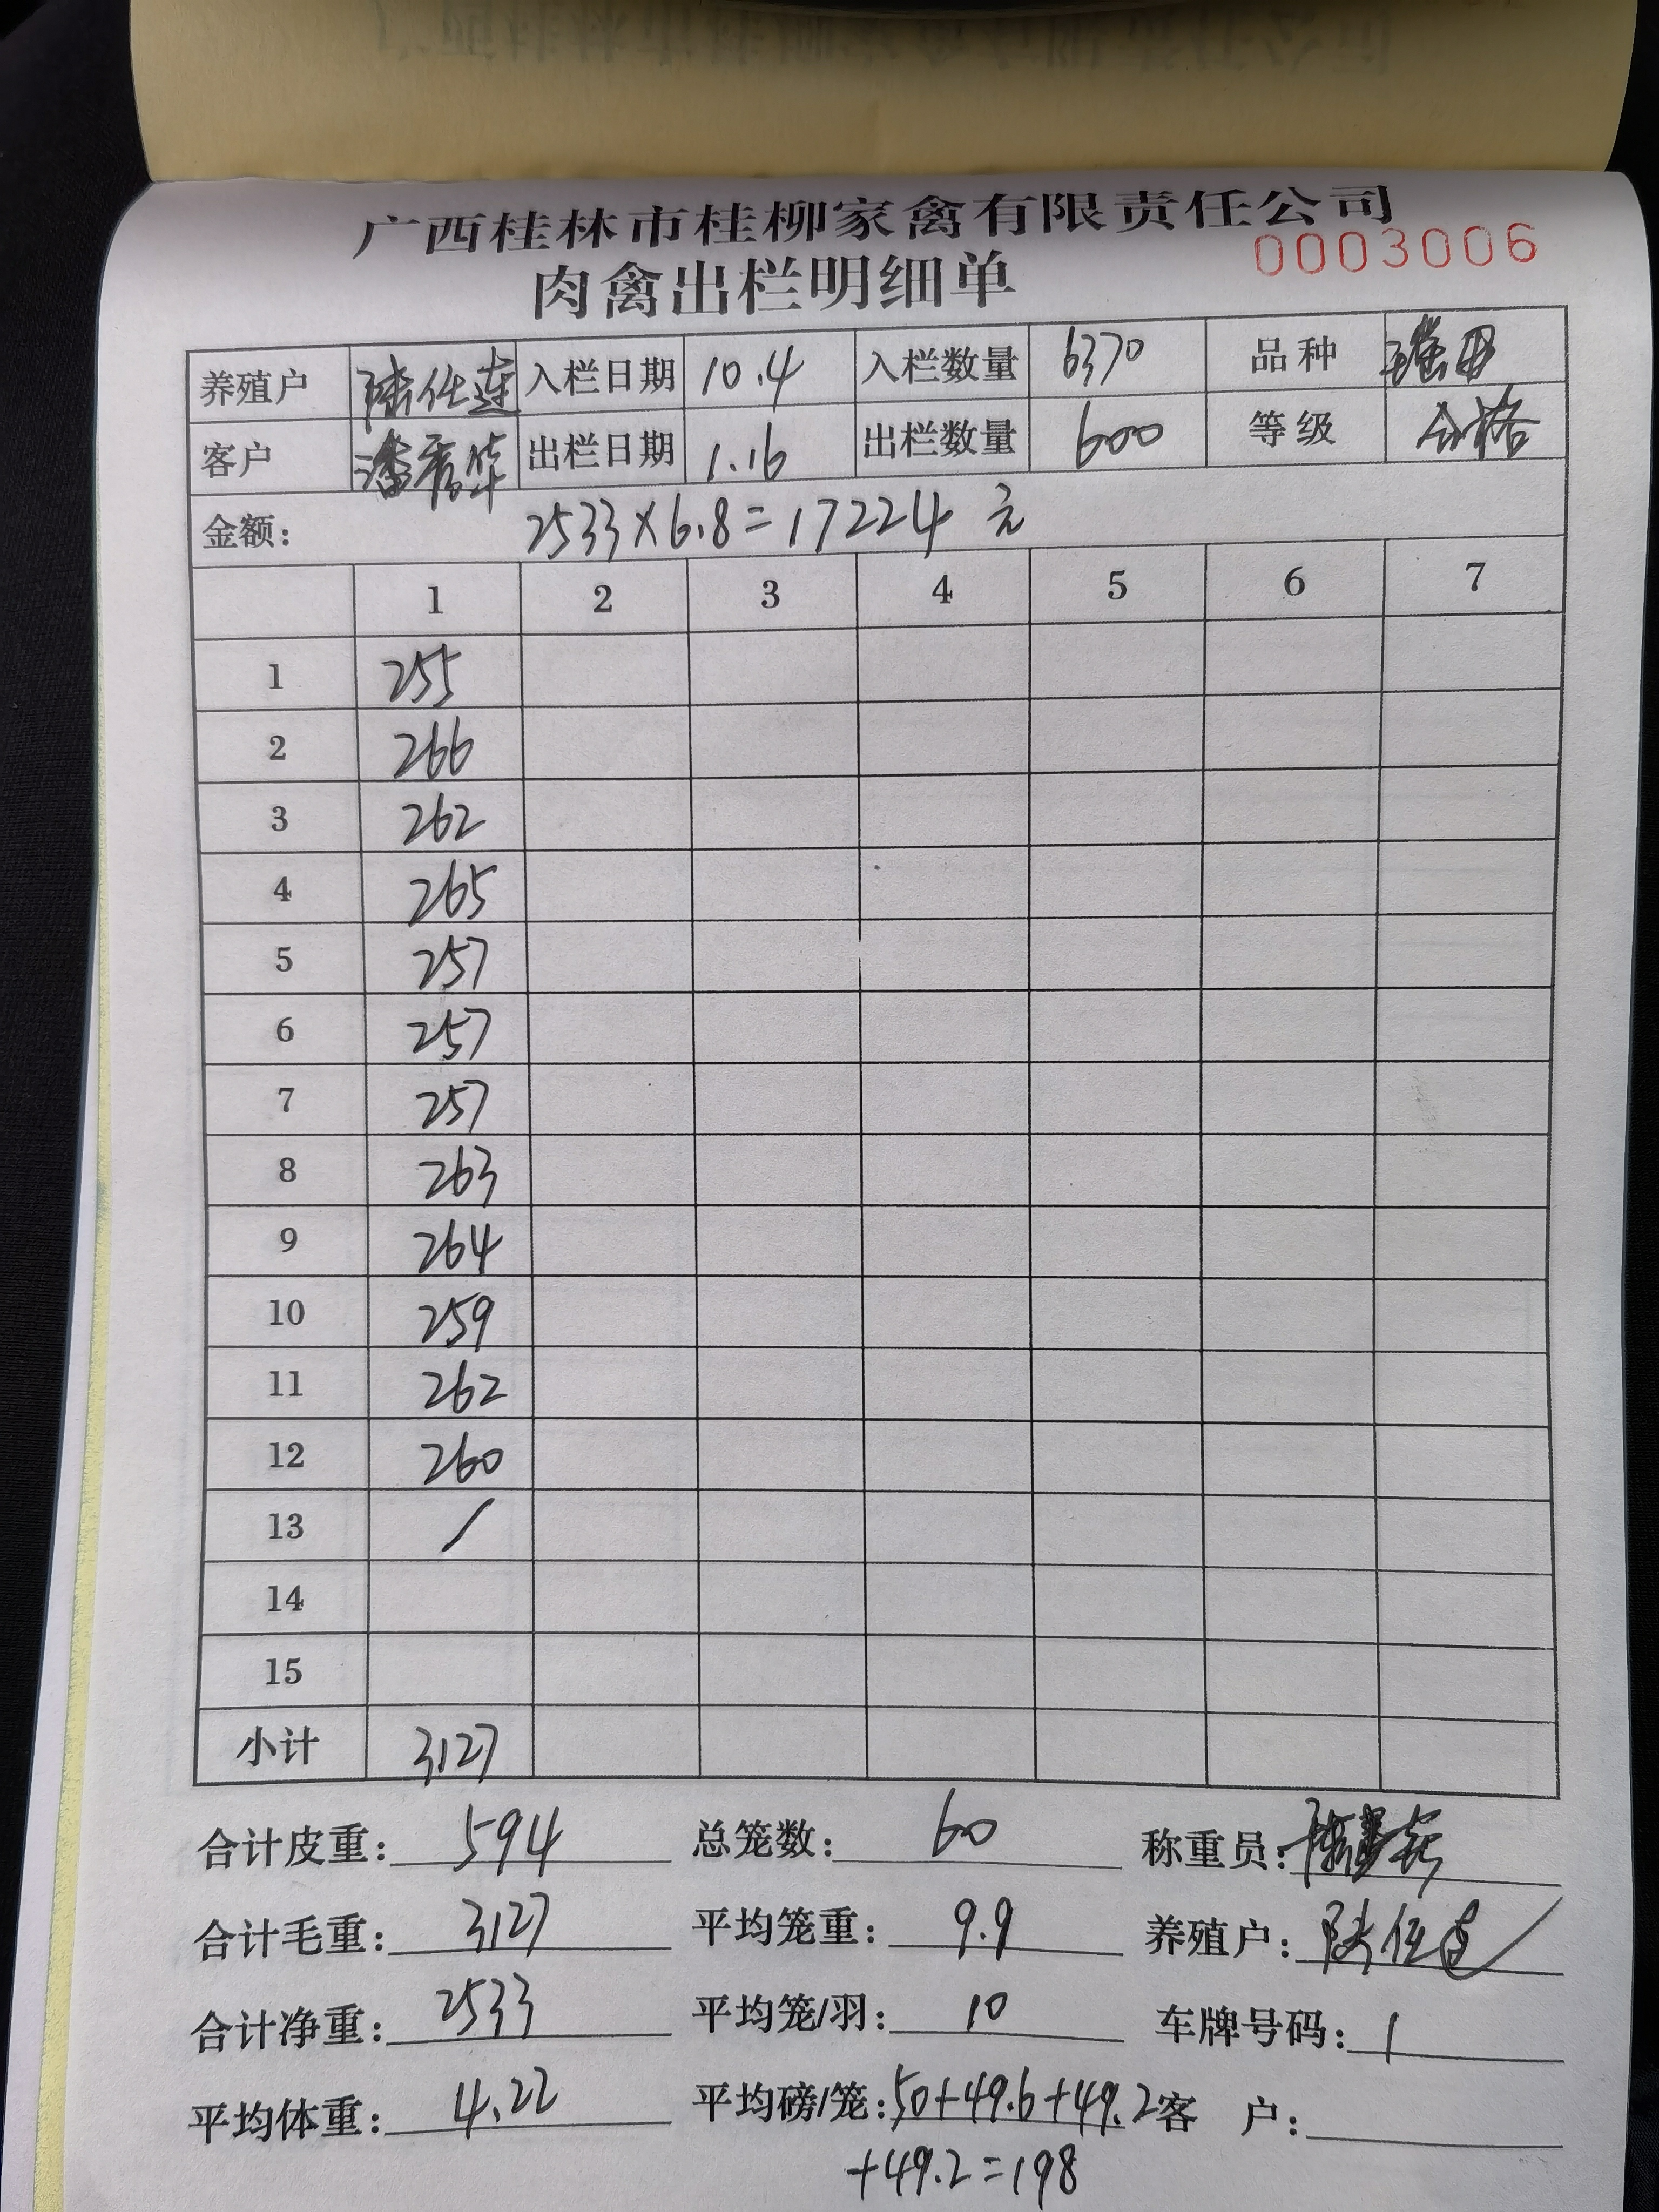 广西桂林市桂柳家禽有限责任公司
0003006
肉禽出栏明细单
养殖户 陆仕莲 入栏日期 10.4 入栏数量 6370 品种
客户 潘秀华 出栏日期 1.16 出栏数量 600 等级 合格
金额: 2533×6.8=17224 元
1 2 3 4 5 6 7
1 255
2 266
3 262
4 265
5 257
6 257
7 257
8 263
9 264
10 259
11 262
12 260
13 /
14
15
小计 3127
合计皮重: 594 总笼数: 60 称重员:
合计毛重: 3127 平均笼重: 9.9 养殖户:
合计净重: 2533 平均笼/羽: 10 车牌号码: 1
平均体重: 4.22 平均磅/笼: 50+49.6+49.2 客 户:
+49.2=198